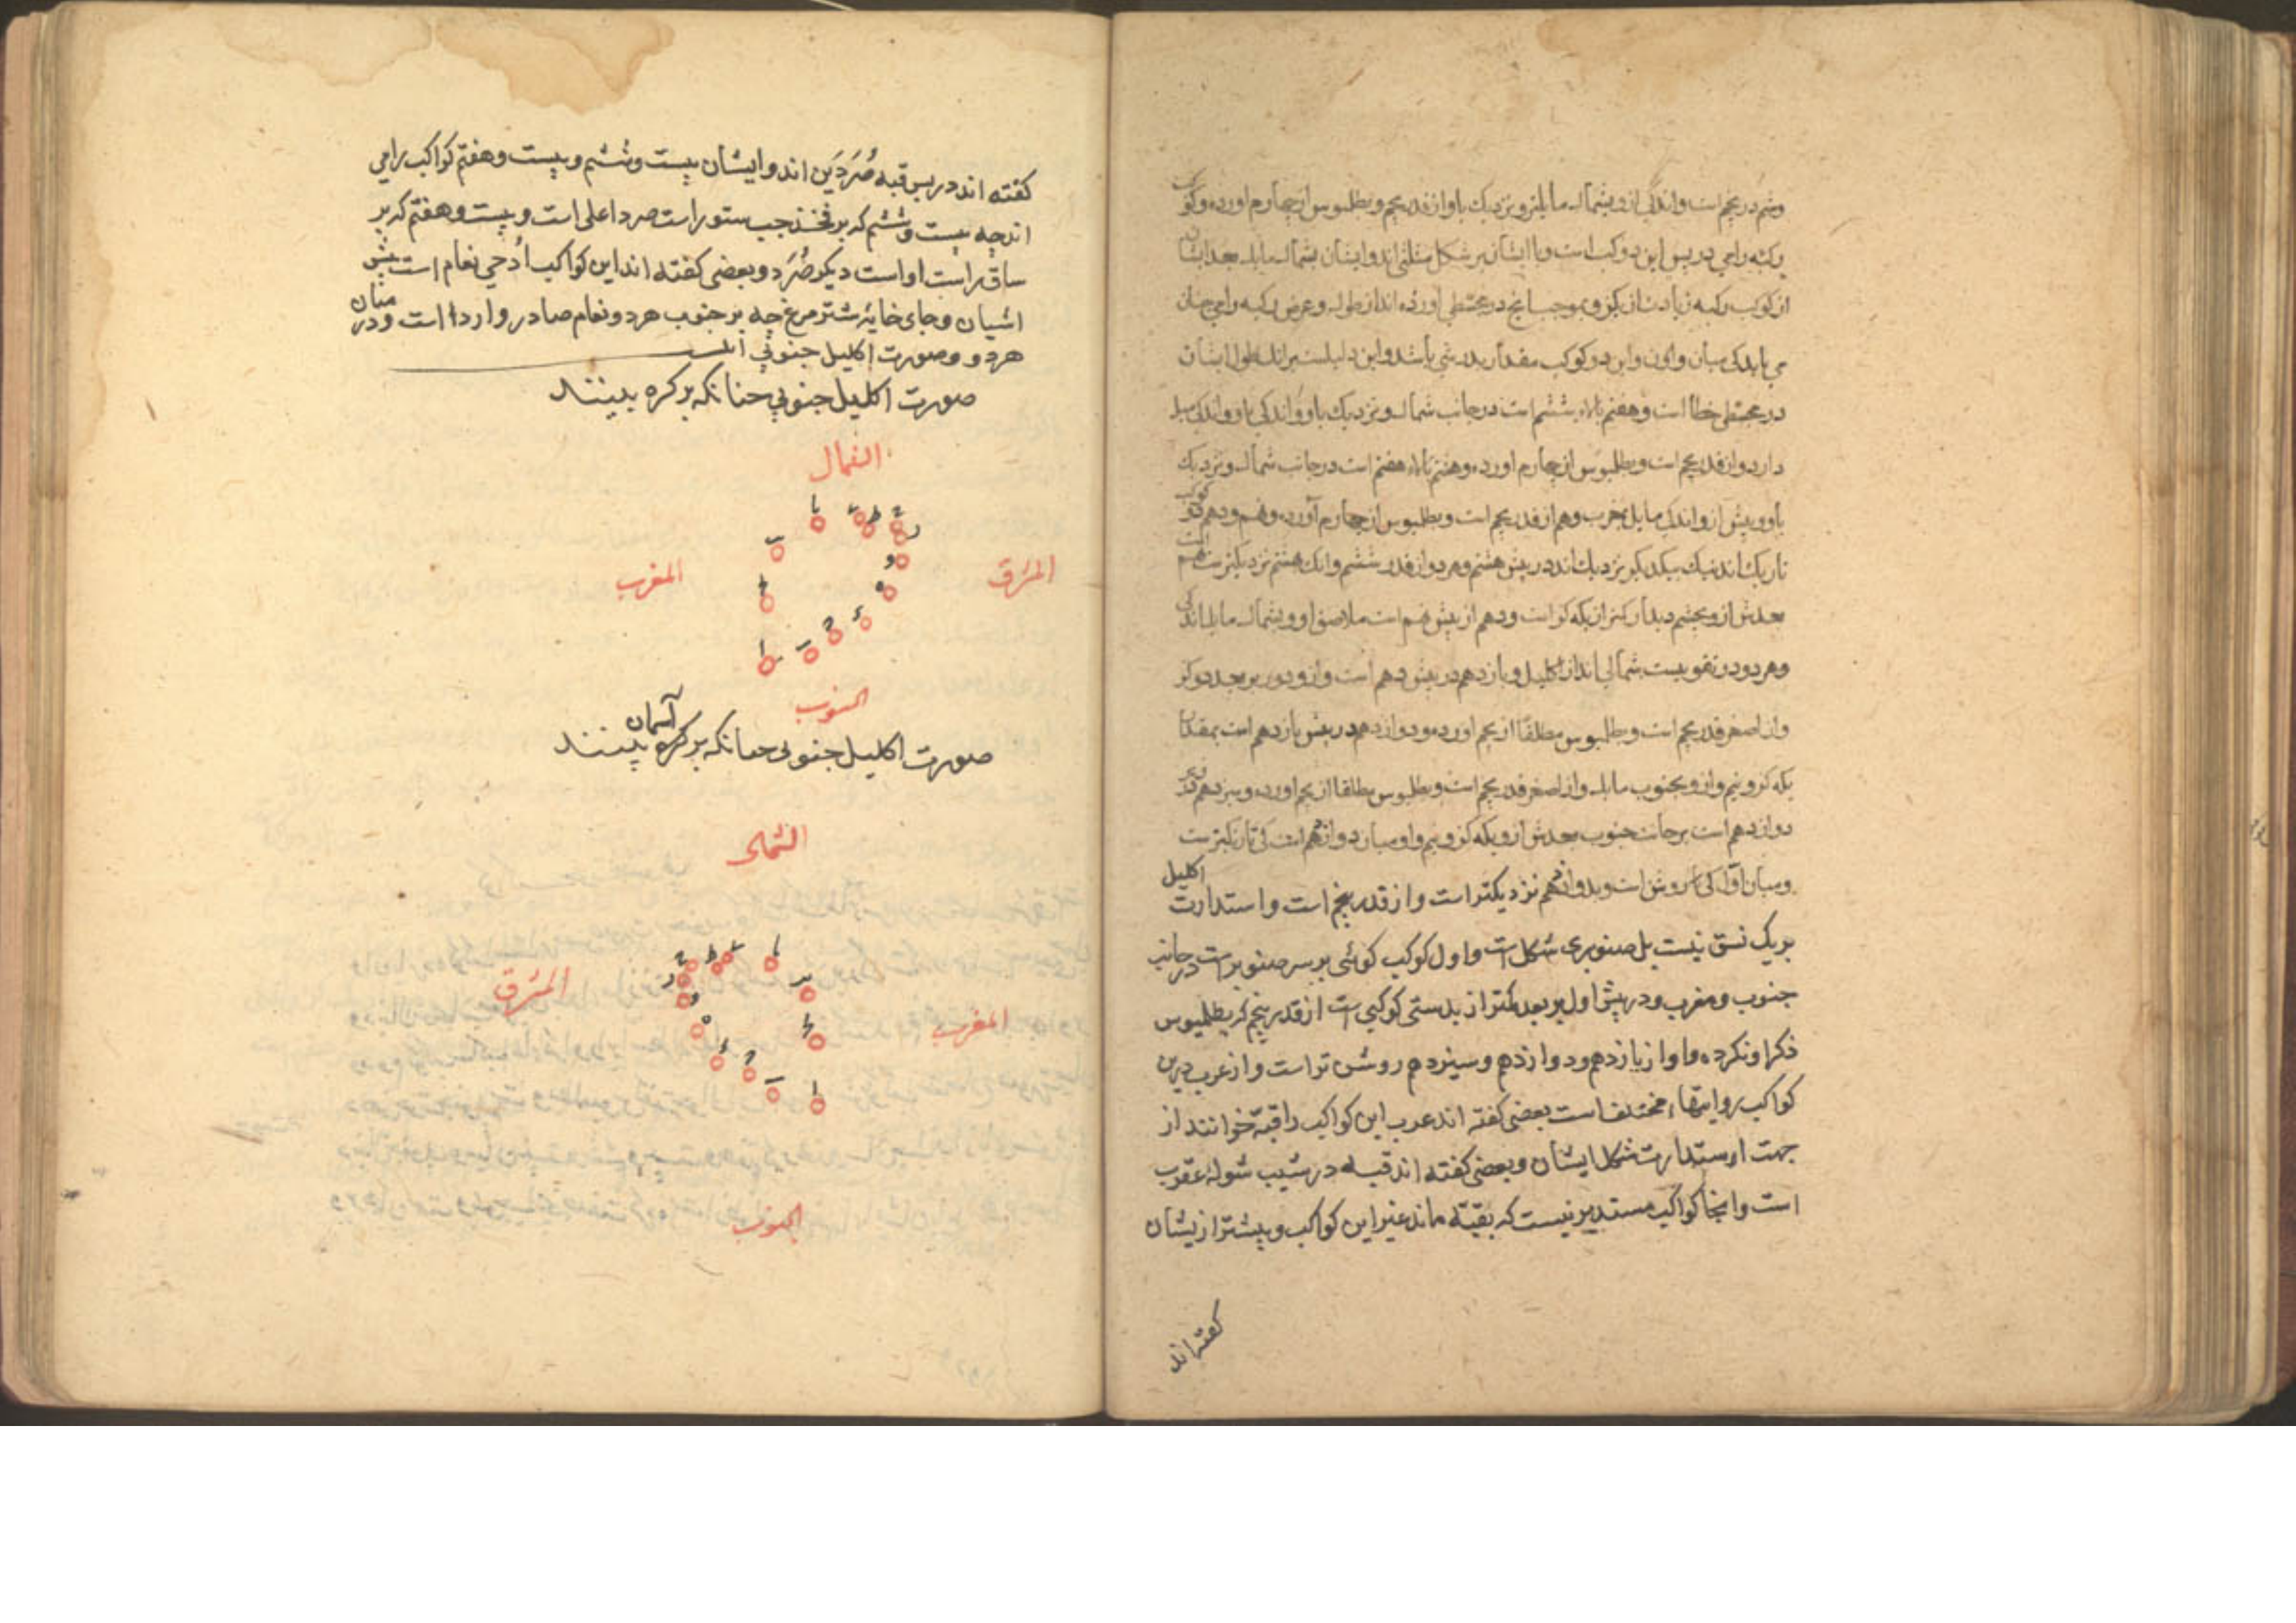 وشم در پنجم است واندکی ازو بشمال مایلتر ونزدیک باو از قدر پنجم وبطلمیوس از چهارم اورده وکوکب
رکبه رامی در پس این دو کوکب است وبا ایشان بر شکل مثلثی اند وایشان بشمال مایل بعد ایشان
از کوکب رکبه زیادت از یک گز وبموجب انچ در مجسطی اورده اند از طول وعرض رکبه رامی چنان
می باید کی میان او واین دو کوکب مقدار بدستی باشد واین دلیلست برانک طول ایشان
در مجسطی خطا است وهفتم بالاء ششم است در جانب شمال ونزدیک باو واندکی میل
دارد واز قدر پنجم است وبطلمیوس از چهارم اورده وهشتم بالاء هفتم است در جانب شمال ونزدیک
باو وپیش ازو واندک مایل بمغرب وهم از قدر پنجم است وبطلمیوس از چهارم آورده ونهم ودهم دو کوکب
تاریک اند نیک بیکدیگر نزدیک اند در پیش هشتم وهر دو از قدر ششم وانک بهشتم نزدیکترست نهم است
بعدش ازو بچشم دیدار کمتر از یکه گز است ودهم از پیش نهم است ملاصق او وبشمال مایل اندکی
وهر دو در تقویست شمالی اند از اکلیل ویازدهم در پیش دهم است وازو دور بر بعد دو گز
واز اصغر قدر پنجم است وبطلمیوس مطلقا از پنجم اورده ودوازدهم در پیش یازدهم است بمقدار
یکه گز ونیم وازو بجنوب مایل واز اصغر قدر پنجم است وبطلمیوس مطلقا از پنجم اورده وسیزدهم نزدیک
دوازدهم است بر جانب جنوب بعدش ازو یکه گز ونیم واو میان دوازدهم است کی تاریکترست
ومیان اول کی روشن است وبدوازدهم نزدیکتر است واز قدر پنجم است واستدارت اکلیل
بریک نسق نیست بل صنوبری شکل است واول کوکب گوئی بر سر صنوبر است در جانب
جنوب ومغرب ودر پیش اول بر بعد کمتر از بدستی کوکبی است از قدر پنجم که بطلمیوس
ذکر او نکرده واو از یازدهم ودوازدهم وسیزدهم روشن تر است واز عرب درین
کواکب روایتهاء مختلف است بعضی گفته اند عرب این کواکب را قبه خوانند از
جهت استدارت شکل ایشان وبعضی گفته اند قبه در شیب شوله عقرب
است وانجا کواکب مستدیر نیست که بقبه ماند غیر این کواکب وپیشتر از یشان
گفته اند
گفته اند در پس قبه صُرَدَین اند وایشان بیست وششم وبیست وهفتم کواکب رامی
اند چه بیست وششم که بر فخذ چپ ستور است صرد اعلی است وبیست وهفتم که بر
ساق راست اواست دیگر صُرَد وبعضی گفته اند این کواکب اُدحی نعام است یعنی
اشیان وجای خایهٔ شتر مرغ چه بر جنوب هر دو نعام صادر ووارد است ودر میان
هردو وصورت اکلیل جنوبی است
صورت اکلیل جنوبی چنانکه بر کره بینند
الشمال
یا ی ط ح ز
یب و
المشرق
المغرب
یج ه
د
ا ب ج
الجنوب
صورت اکلیل جنوبی چنانکه بر آسمان بینند
الشمال
ح ط ی یا
ز یب
المشرق
و
المغرب
ه یج
د ج ب ا
الجنوب